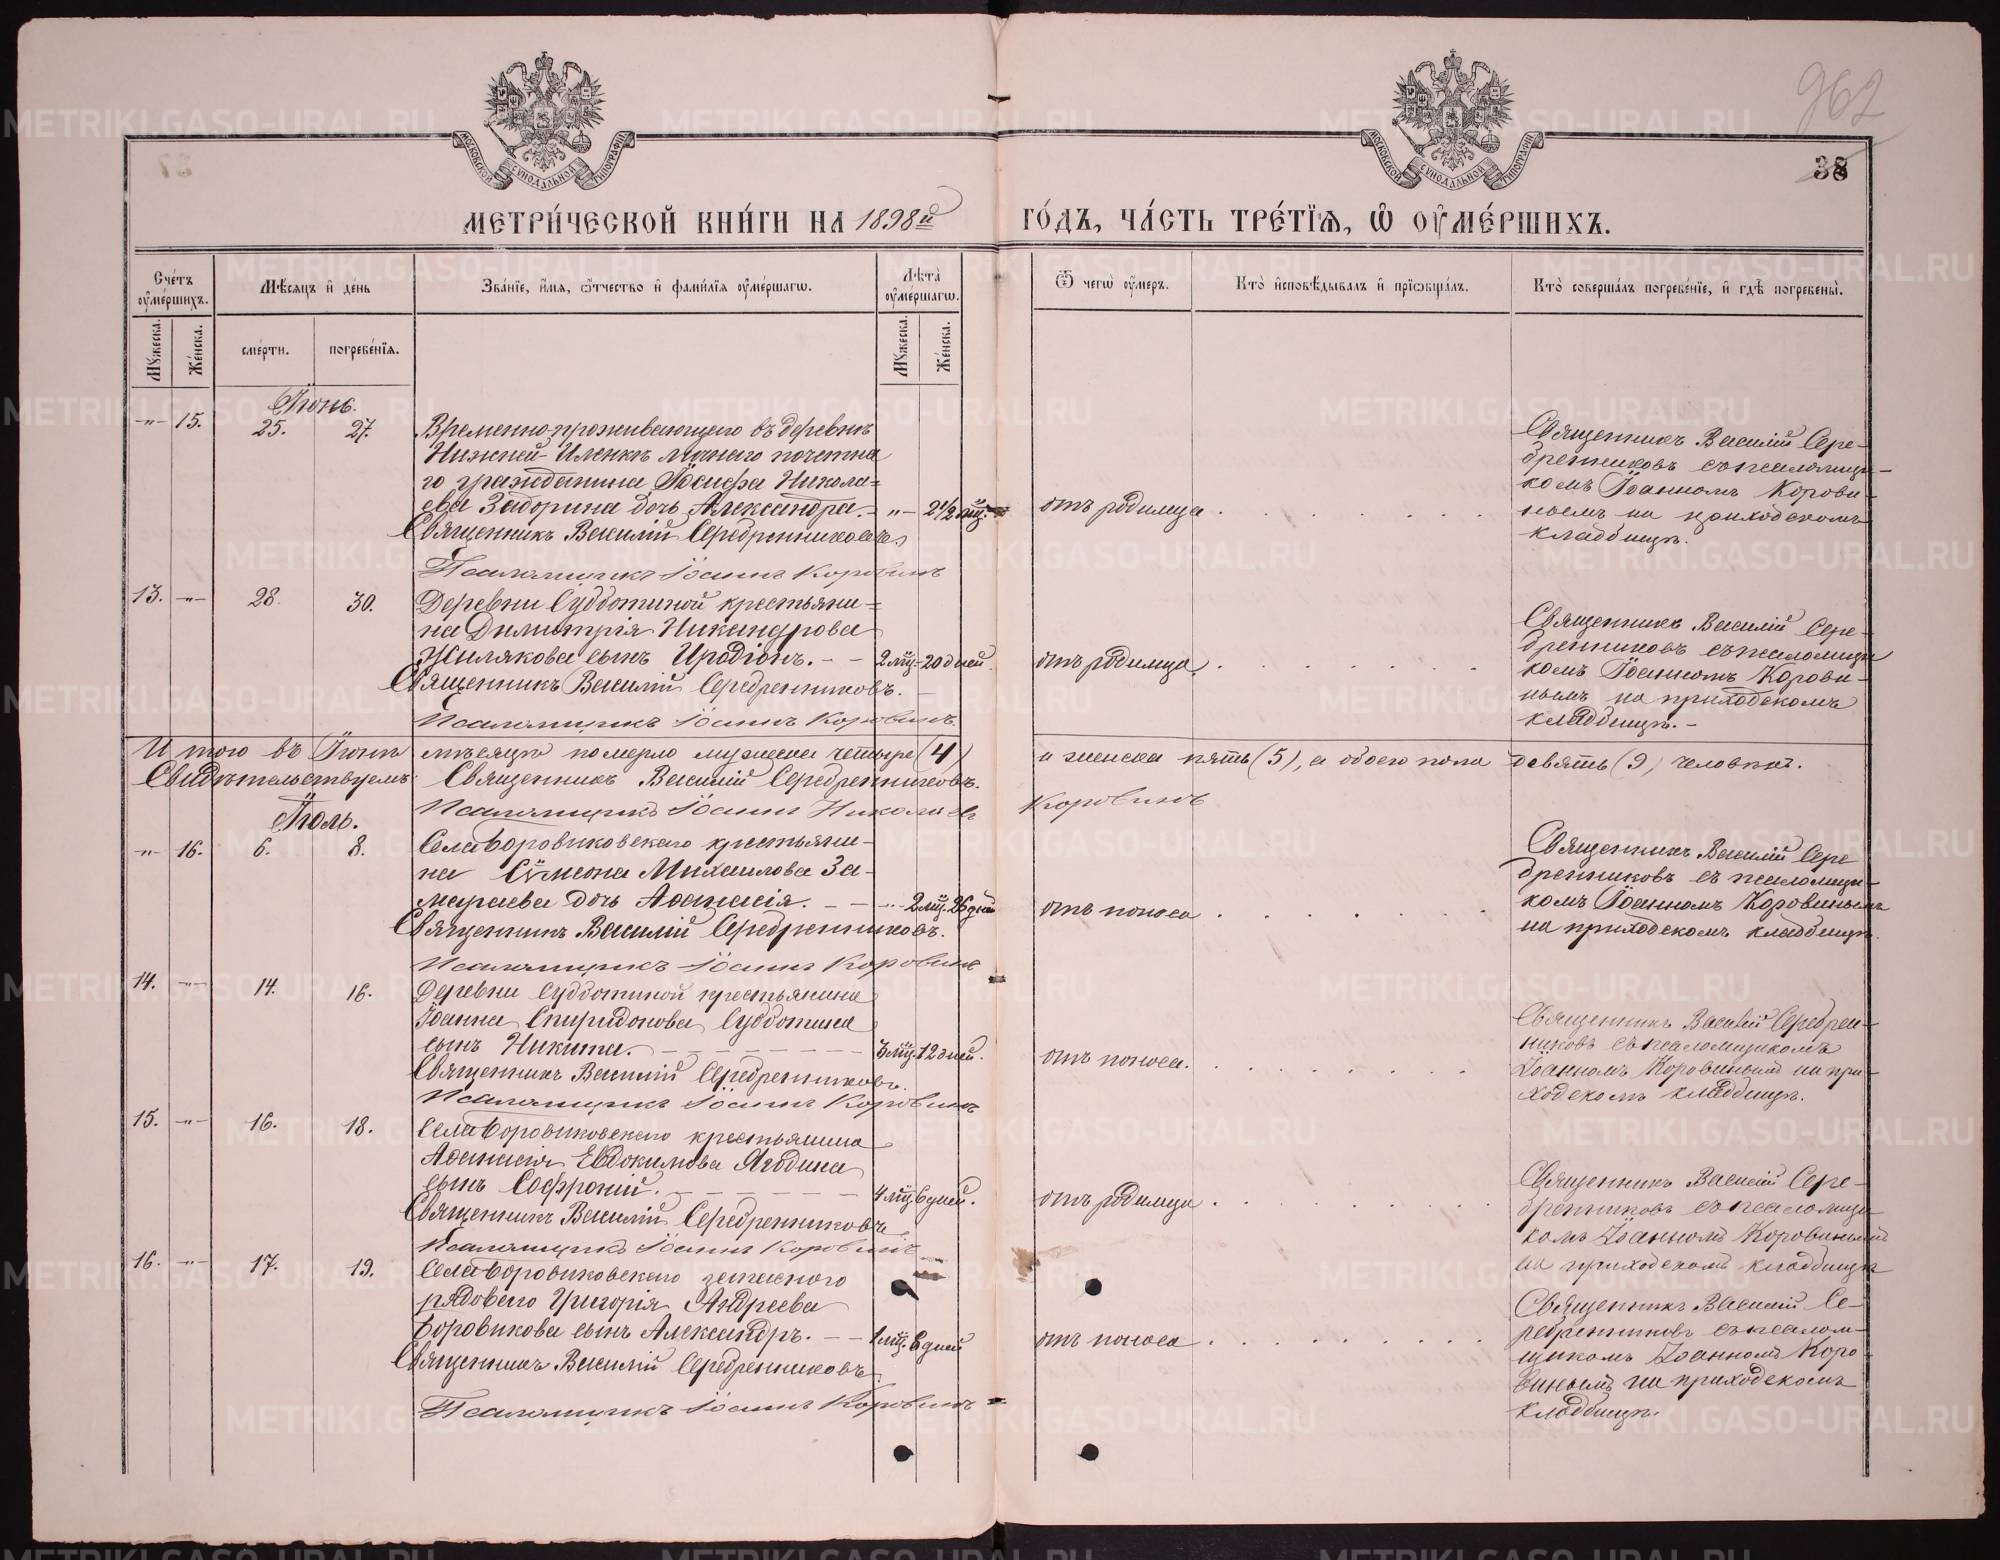 962
38
МОСКОВСКОЙ СѴНОДАЛЬНОЙ ТИПОГРАФІИ
МОСКОВСКОЙ СѴНОДАЛЬНОЙ ТИПОГРАФІИ
МЕТРИ́ЧЕСКОЙ КНИ́ГИ НА 1898й ГО́ДЪ, ЧА́СТЬ ТРЕ́ТІѦ, Ѡ҆ ОУ҆МЕ́РШИХЪ.
Сче́тъ оу҆ме́ршихъ.
Мꙋжеска.
Же́нска.
Мѣ́сѧцъ и҆ де́нь
сме́рти.
погребе́нїѧ.
Зва́нїе, и҆́мѧ, ѻ҆́тчество и҆ фами́лїѧ оу҆ме́ршагѡ.
Лѣ́та оу҆ме́ршагѡ.
Мꙋжеска.
Же́нска.
Ѿ чегѡ̀ оу҆́меръ.
Кто̀ и҆сповѣ́дывалъ и҆ прїѡбща́лъ.
Кто̀ соверша́лъ погребе́нїе, и҆ гдѣ̀ погребены̀.
Іюнь.
-„- 15. 25. 27. Временно-проживающаго въ деревнѣ
Нижней-Иленкѣ личнаго почетна
го гражданина Іосифа Никола=
ева Задорина дочь Александра. - -„- 2 1/2 мц. отъ родимца
Священникъ Василій Серебренниковъ
Псаломщикъ Іоаннъ Коровинъ
Священникъ Василій Сере-
бренниковъ съ псаломщи-
комъ Іоанномъ Корови-
нымъ на приходскомъ
кладбищѣ.
13. -„- 28. 30. Деревни Субботиной крестьяни=
на Димитрія Никандрова
Жилякова сынъ Иродіонъ. - - 2 мц. 20 дней. отъ родимца.
Священникъ Василій Серебренниковъ.
Псаломщикъ Іоаннъ Коровинъ
Священникъ Василій Сере-
бренниковъ съ псаломщи
комъ Іоанномъ Корови-
нымъ на приходскомъ
кладбищѣ. -
Итого въ Іюнѣ мѣсяцѣ померло мужеска четыре (4) и женска пять (5), а обоего пола девять (9) человѣкъ.
Свидѣтельствуемъ: Священникъ Василій Серебренниковъ.
Псаломщикъ Іоаннъ Николаевъ Коровинъ
Іюль.
-„- 16. 6. 8. Села Боровиковскаго крестьяни-
на Сѷмеона Михаилова За-
мараева дочь Аѳанасія. - - -„- 2 мц. 26 дней отъ поноса
Священникъ Василій Серебренниковъ.
Псаломщикъ Іоаннъ Коровинъ
Священникъ Василій Сере
бренниковъ съ псаломщи-
комъ Іоанномъ Коровинымъ
на приходскомъ кладбищѣ.
14. -„- 14. 16. Деревни Субботиной крестьянина
Іоанна Спиридонова Субботина
сынъ Никита. 3 мц. 12 дней. отъ поноса.
Священникъ Василій Серебренниковъ.
Псаломщикъ Іоаннъ Коровинъ
Священникъ Василій Серебрен-
никовъ съ псаломщикомъ
Іоанномъ Коровинымъ на при-
ходскомъ кладбищѣ.
15. -„- 16. 18. Села Боровиковскаго крестьянина
Аѳанасія Евдокимова Ягодина
сынъ Софроній. 4 мц. 6 дней. отъ родимца
Священникъ Василій Серебренниковъ
Псаломщикъ Іоаннъ Коровинъ
Священникъ Василій Сере-
бренниковъ съ псаломщи
комъ Іоанномъ Коровинымъ
на приходскомъ кладбищѣ
16. -„- 17. 19. Села Боровиковскаго запаснаго
рядоваго Григорія Андреева
Боровикова сынъ Александръ. - - 1 мц. 6 дней отъ поноса
Священникъ Василій Серебренниковъ
Псаломщикъ Іоаннъ Коровинъ
Священникъ Василій Се-
ребренниковъ съ псалом-
щикомъ Іоанномъ Коро-
винымъ на приходскомъ
кладбищѣ.
METRIKI.GASO-URAL.RU